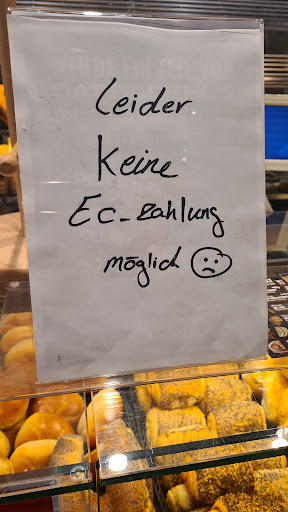 Leider
Keine
Ec-Zahlung
möglich